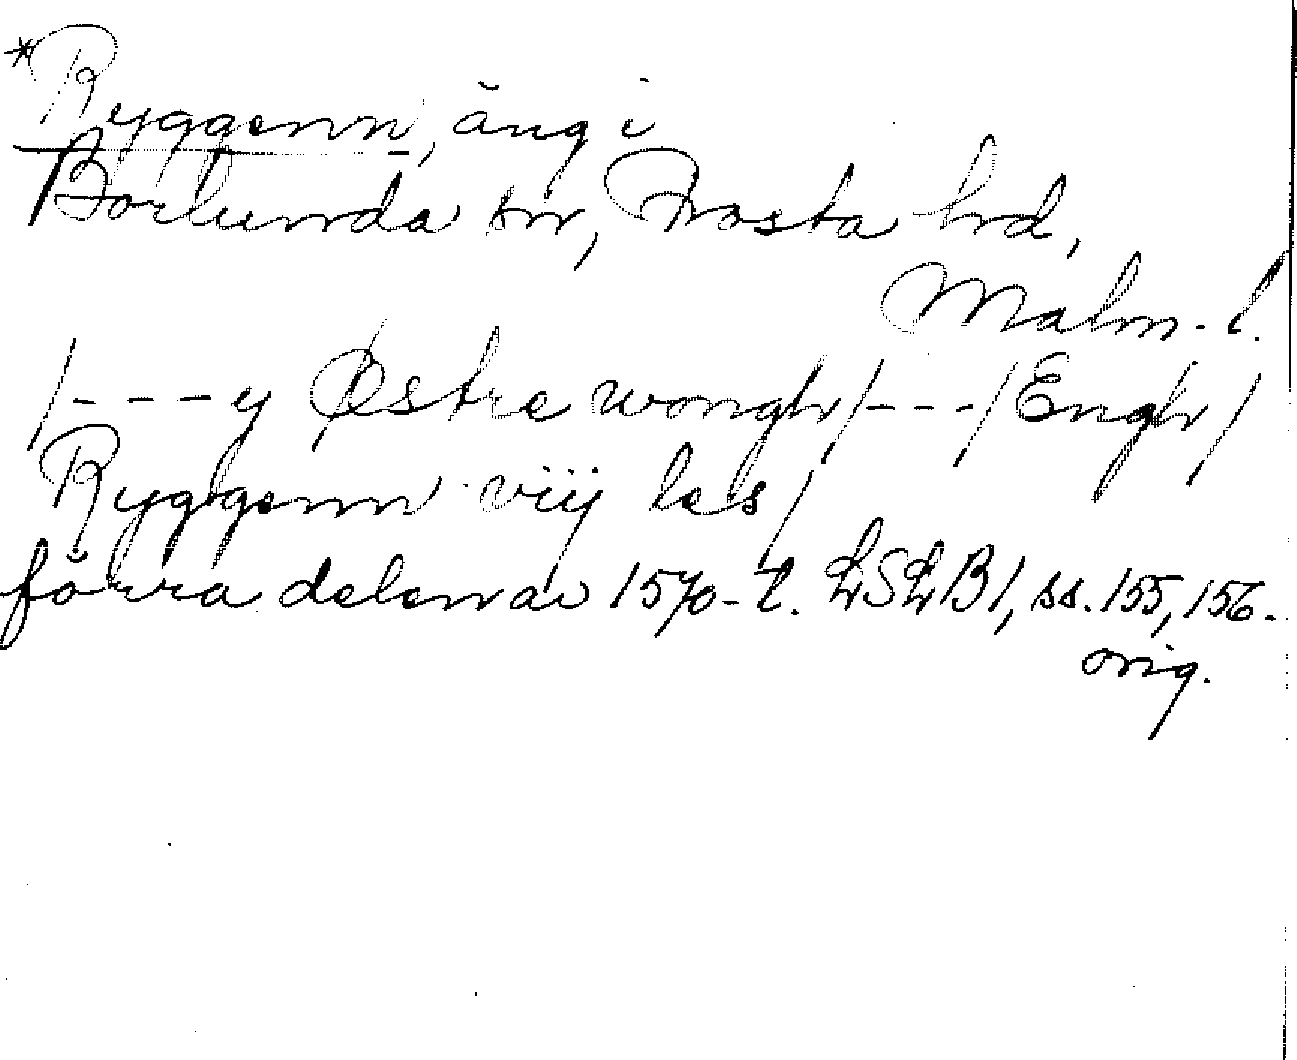 *Ryggenn, äng i
Borlunda sn, Frosta hd,
Malm. l.
/- - - y Østre wongh/- - -/Engh/
Ryggenn viij les/
förra delen av 1570-t. LSLB1, ss. 155, 156.
orig.